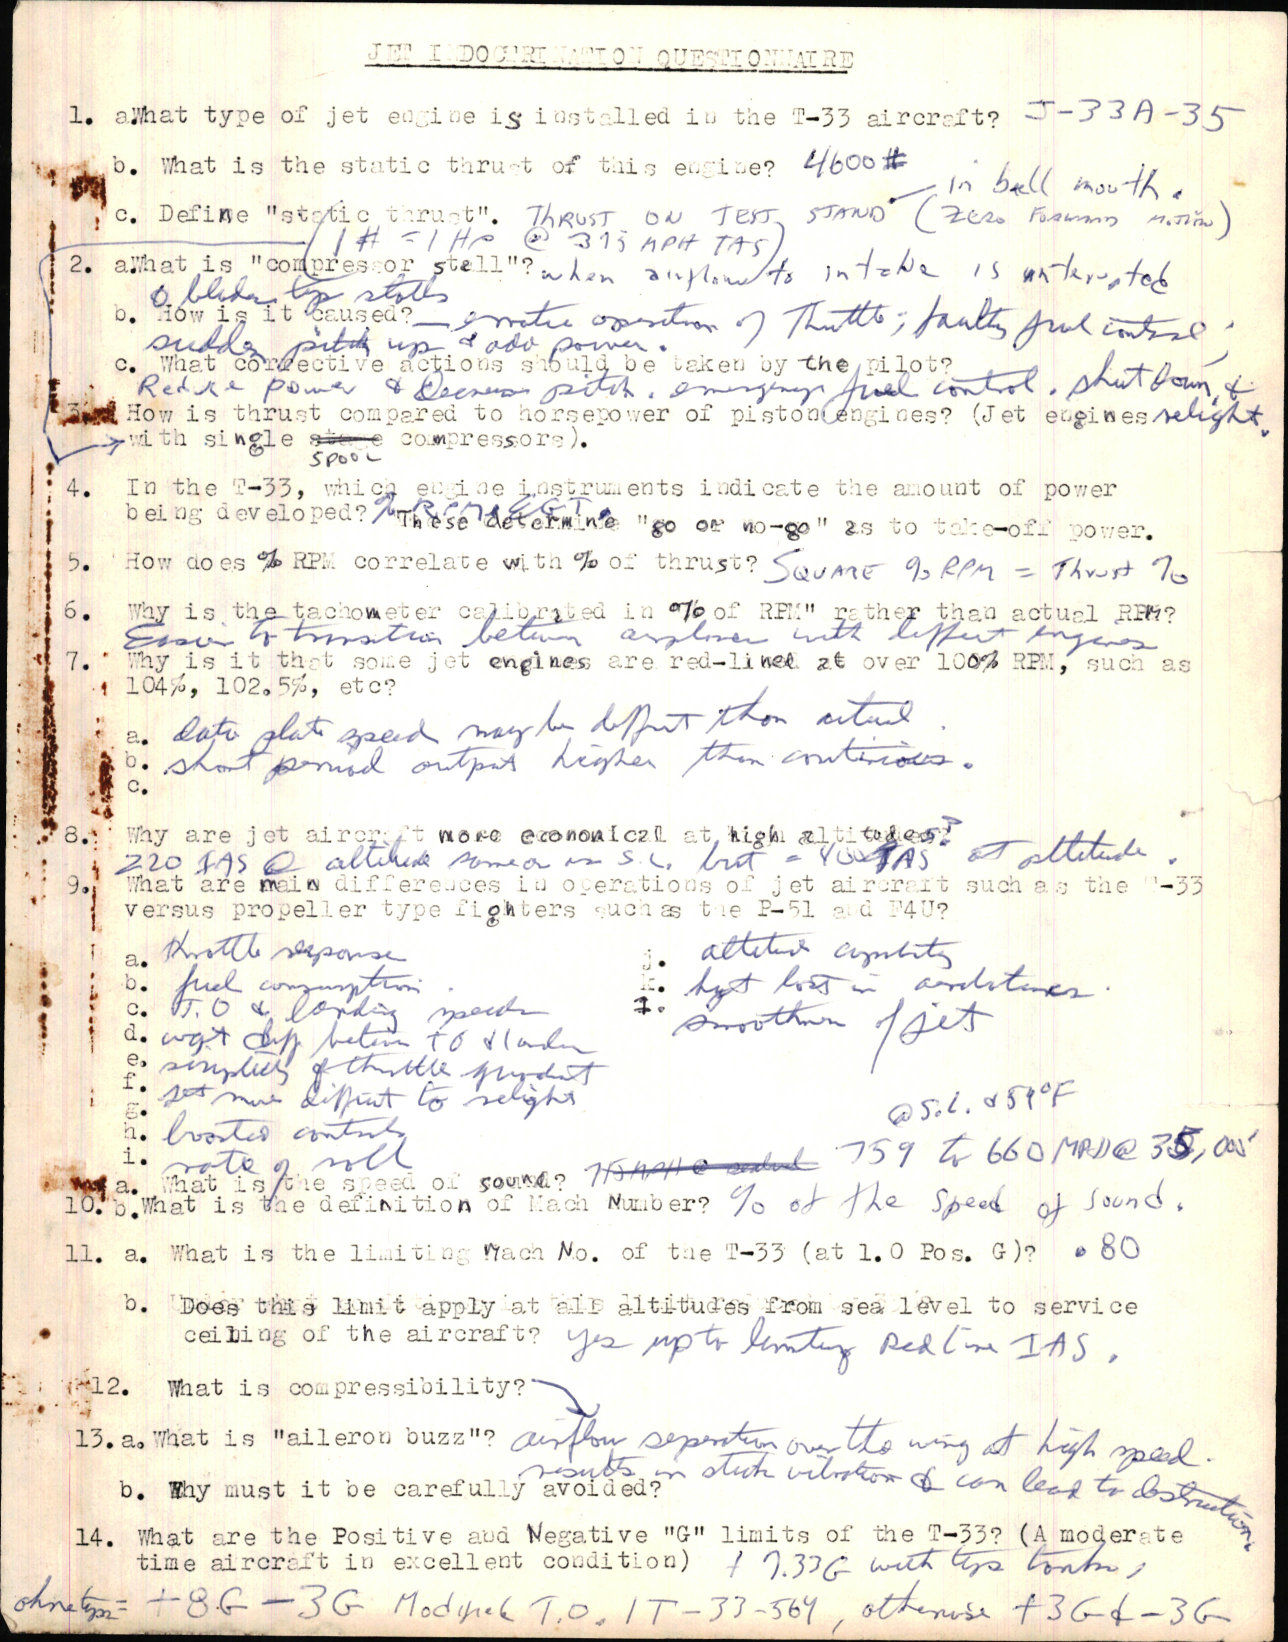 JET INDOCTRINATION QUESTIONNAIRE
1. a. What type of jet engine is installed in the T-33 aircraft? J-33A-35
b. What is the static thrust of this engine? 4600#
in bell mouth.
c. Define "static thrust". THRUST ON TEST STAND (ZERO FORWARD MOTION)
(1# = 1 HP @ 375 MPH TAS)
2. a. What is "compressor stall"? when airflow to intake is interrupted
blade tip stalls
b. How is it caused? - erratic operation of Throttle; faulty fuel control;
sudden pitch up & add power.
c. What corrective actions should be taken by the pilot?
Reduce power & Decrease pitch. emergency fuel control. Shut down, &
relight.
3. How is thrust compared to horsepower of piston engines? (Jet engines
with single stage compressors).
SPOOL
4. In the T-33, which engine instruments indicate the amount of power
being developed? % RPM & EGT. These determine "go or no-go" as to take-off power.
5. How does % RPM correlate with % of thrust? SQUARE % RPM = Thrust %
6. Why is the tachometer calibrated in "% of RPM" rather than actual RPM?
Easier to transition between airplanes with diffent engines
7. Why is it that some jet engines are red-lined at over 100% RPM, such as
104%, 102.5%, etc?
a. data plate speed may be diffent than actual.
b. short period output higher than continious.
c.
8. Why are jet aircraft more economical at high altitudes?
220 IAS @ altitude same as in S.L. but = 400 TAS at altitude.
9. What are main differences in operations of jet aircraft such as the T-33
versus propeller type fighters such as the P-51 and F4U?
a. throttle response
b. fuel consumption.
c. T.O & landing speeds
d. wgt diff between TO & landin
e. simplicity of throttle quadrant
f. jet more diffient to relight
g.
h. boosted controls
i. rate of roll
j. altitude capability
k. hgt lost in aerobatics.
l. smoothness of jet
@ S.L. & 59°F
10. a. What is the speed of sound? 759 to 660 MPH @ 35,000'
b. What is the definition of Mach Number? % of the speed of sound.
11. a. What is the limiting Mach No. of the T-33 (at 1.0 Pos. G)? .80
b. Does this limit apply at all altitudes from sea level to service
ceiling of the aircraft? Yes up to limiting Red line IAS.
12. What is compressibility?
13. a. What is "aileron buzz"? airflow seperation over the wing at high speed.
results in stick vibration & can lead to destruction.
b. Why must it be carefully avoided?
14. What are the Positive and Negative "G" limits of the T-33? (A moderate
time aircraft in excellent condition) + 7.33G with tip tanks,
ohne tips = +8G -3G Modified T.O. 1T-33-564, otherwise +3G & -3G